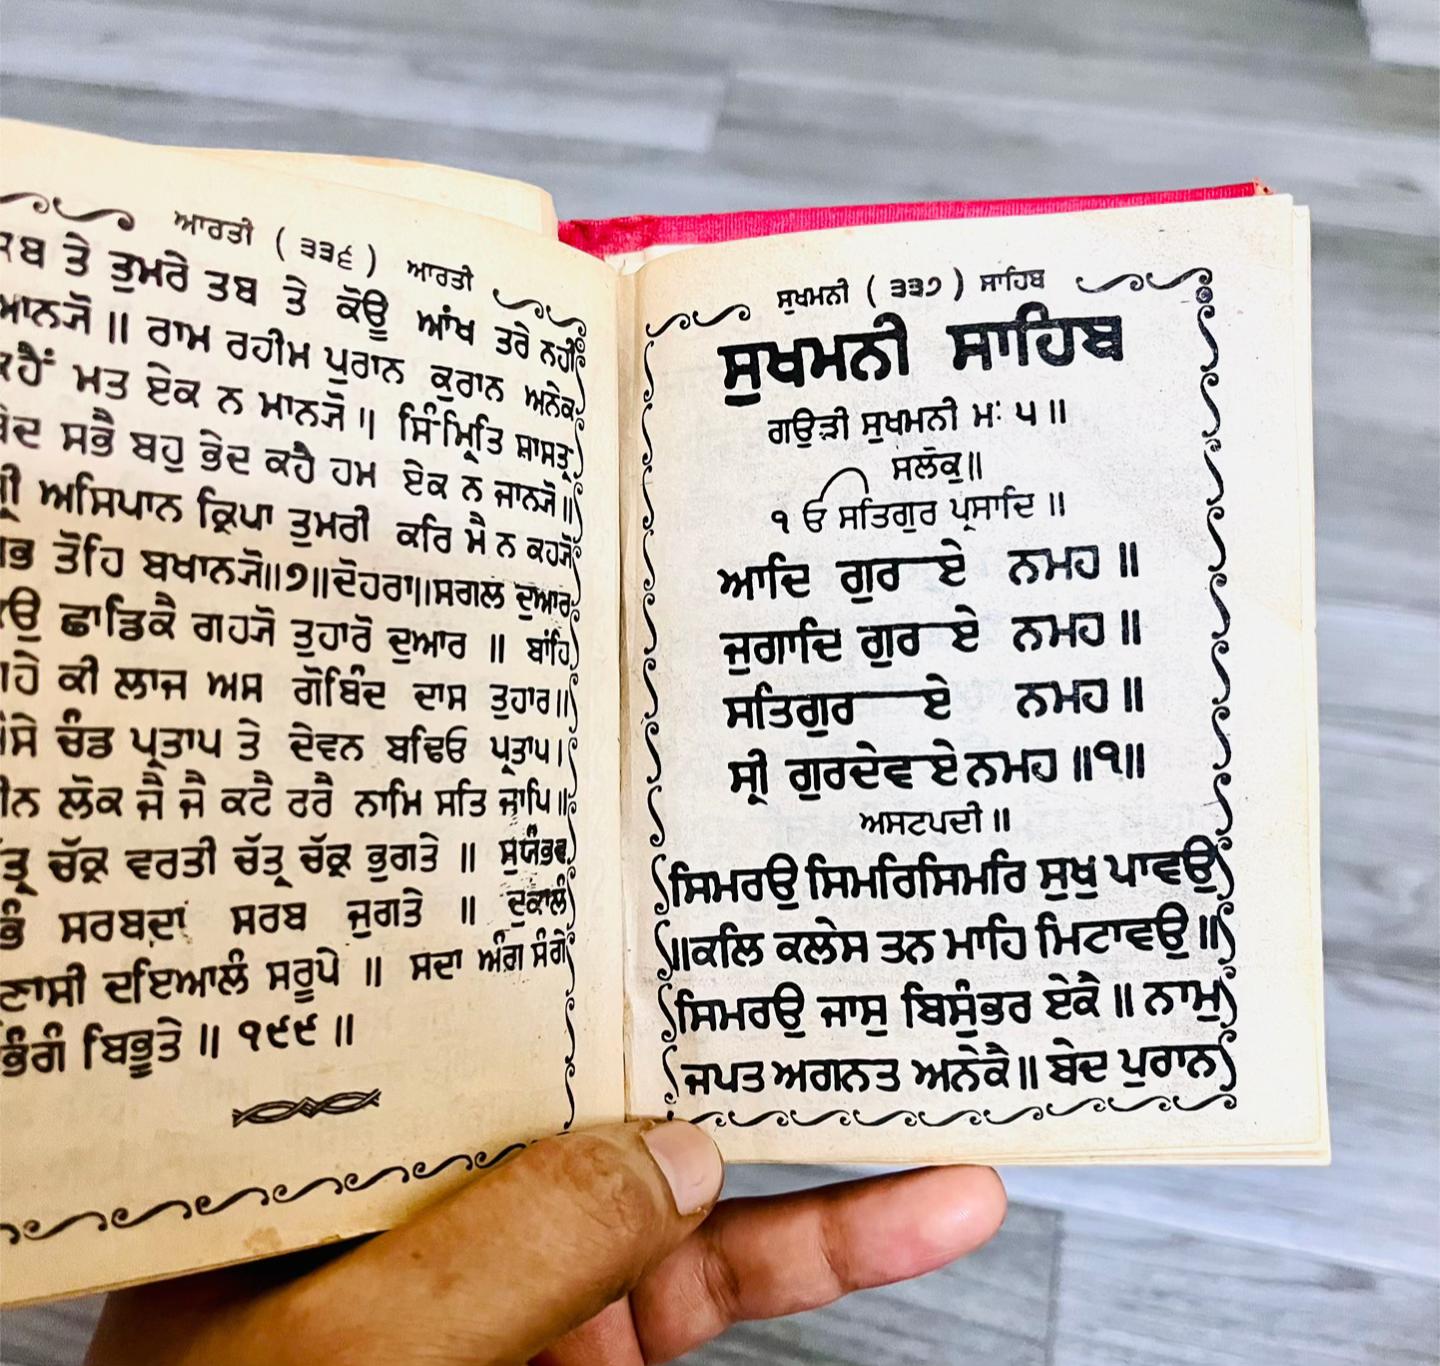 ਆਰਤੀ ( ੩੩੬ ) ਆਰਤੀ
ਤੇ ਤੁਮਰੇ ਤਬ ਤੇ ਕੋਊ ਆਂਖ ਤਰੇ ਨਹੀ
॥ ਰਾਮ ਰਹੀਮ ਪੁਰਾਨ ਕੁਰਾਨ ਅਨੇਕ
ਮਤ ਏਕ ਨ ਮਾਨਯੋ ॥ ਸਿੰਮ੍ਰਿਤਿ ਸ਼ਾਸਤ੍ਰ
ਸਭੈ ਬਹੁ ਭੇਦ ਕਹੈ ਹਮ ਏਕ ਨ ਜਾਨਯੋ ॥
ਅਸਿਪਾਨ ਕ੍ਰਿਪਾ ਤੁਮਰੀ ਕਰਿ ਮੈ ਨ ਕਹਯੋ
ਤੋਹਿ ਬਖਾਨਯੋ॥੭॥ਦੋਹਰਾ॥ਸਗਲ ਦੁਆਰ
ਛਾਡਿਕੈ ਗਹਯੋ ਤੁਹਾਰੋ ਦੁਆਰ ॥ ਬਾਂਹਿ
ਕੀ ਲਾਜ ਅਸ ਗੋਬਿੰਦ ਦਾਸ ਤੁਹਾਰ॥
ਚੰਡ ਪ੍ਰਤਾਪ ਤੇ ਦੇਵਨ ਬਢਿਓ ਪ੍ਰਤਾਪ।
ਲੋਕ ਜੈ ਜੈ ਕਟੈ ਰਰੈ ਨਾਮਿ ਸਤਿ ਜਾਪਿ॥
ਚੱਕ੍ਰ ਵਰਤੀ ਚੱਤ੍ਰ ਚੱਕ੍ਰ ਭੁਗਤੇ ॥ ਸੁਯੰਭਵ
ਸਰਬਦਾ ਸਰਬ ਜੁਗਤੇ ॥ ਦੁਕਾਲੰ
ਦਇਆਲੰ ਸਰੂਪੇ ॥ ਸਦਾ ਅੰਗ ਸੰਗੇ
ਬਿਭੂਤੇ ॥ ੧੯੯ ॥
ਸੁਖਮਨੀ ( ੩੩੭ ) ਸਾਹਿਬ
ਸੁਖਮਨੀ ਸਾਹਿਬ
ਗਉੜੀ ਸੁਖਮਨੀ ਮਃ ੫ ॥
ਸਲੋਕੁ॥
ੴ ਸਤਿਗੁਰ ਪ੍ਰਸਾਦਿ ॥
ਆਦਿ ਗੁਰ ਏ ਨਮਹ ॥
ਜੁਗਾਦਿ ਗੁਰ ਏ ਨਮਹ ॥
ਸਤਿਗੁਰ ਏ ਨਮਹ ॥
ਸ੍ਰੀ ਗੁਰਦੇਵ ਏ ਨਮਹ ॥੧॥
ਅਸਟਪਦੀ ॥
ਸਿਮਰਉ ਸਿਮਰਿਸਿਮਰਿ ਸੁਖੁ ਪਾਵਉ
॥ਕਲਿ ਕਲੇਸ ਤਨ ਮਾਹਿ ਮਿਟਾਵਉ ॥
ਸਿਮਰਉ ਜਾਸੁ ਬਿਸੁੰਭਰ ਏਕੈ ॥ ਨਾਮੁ
ਜਪਤ ਅਗਨਤ ਅਨੇਕੈ॥ ਬੇਦ ਪੁਰਾਨ